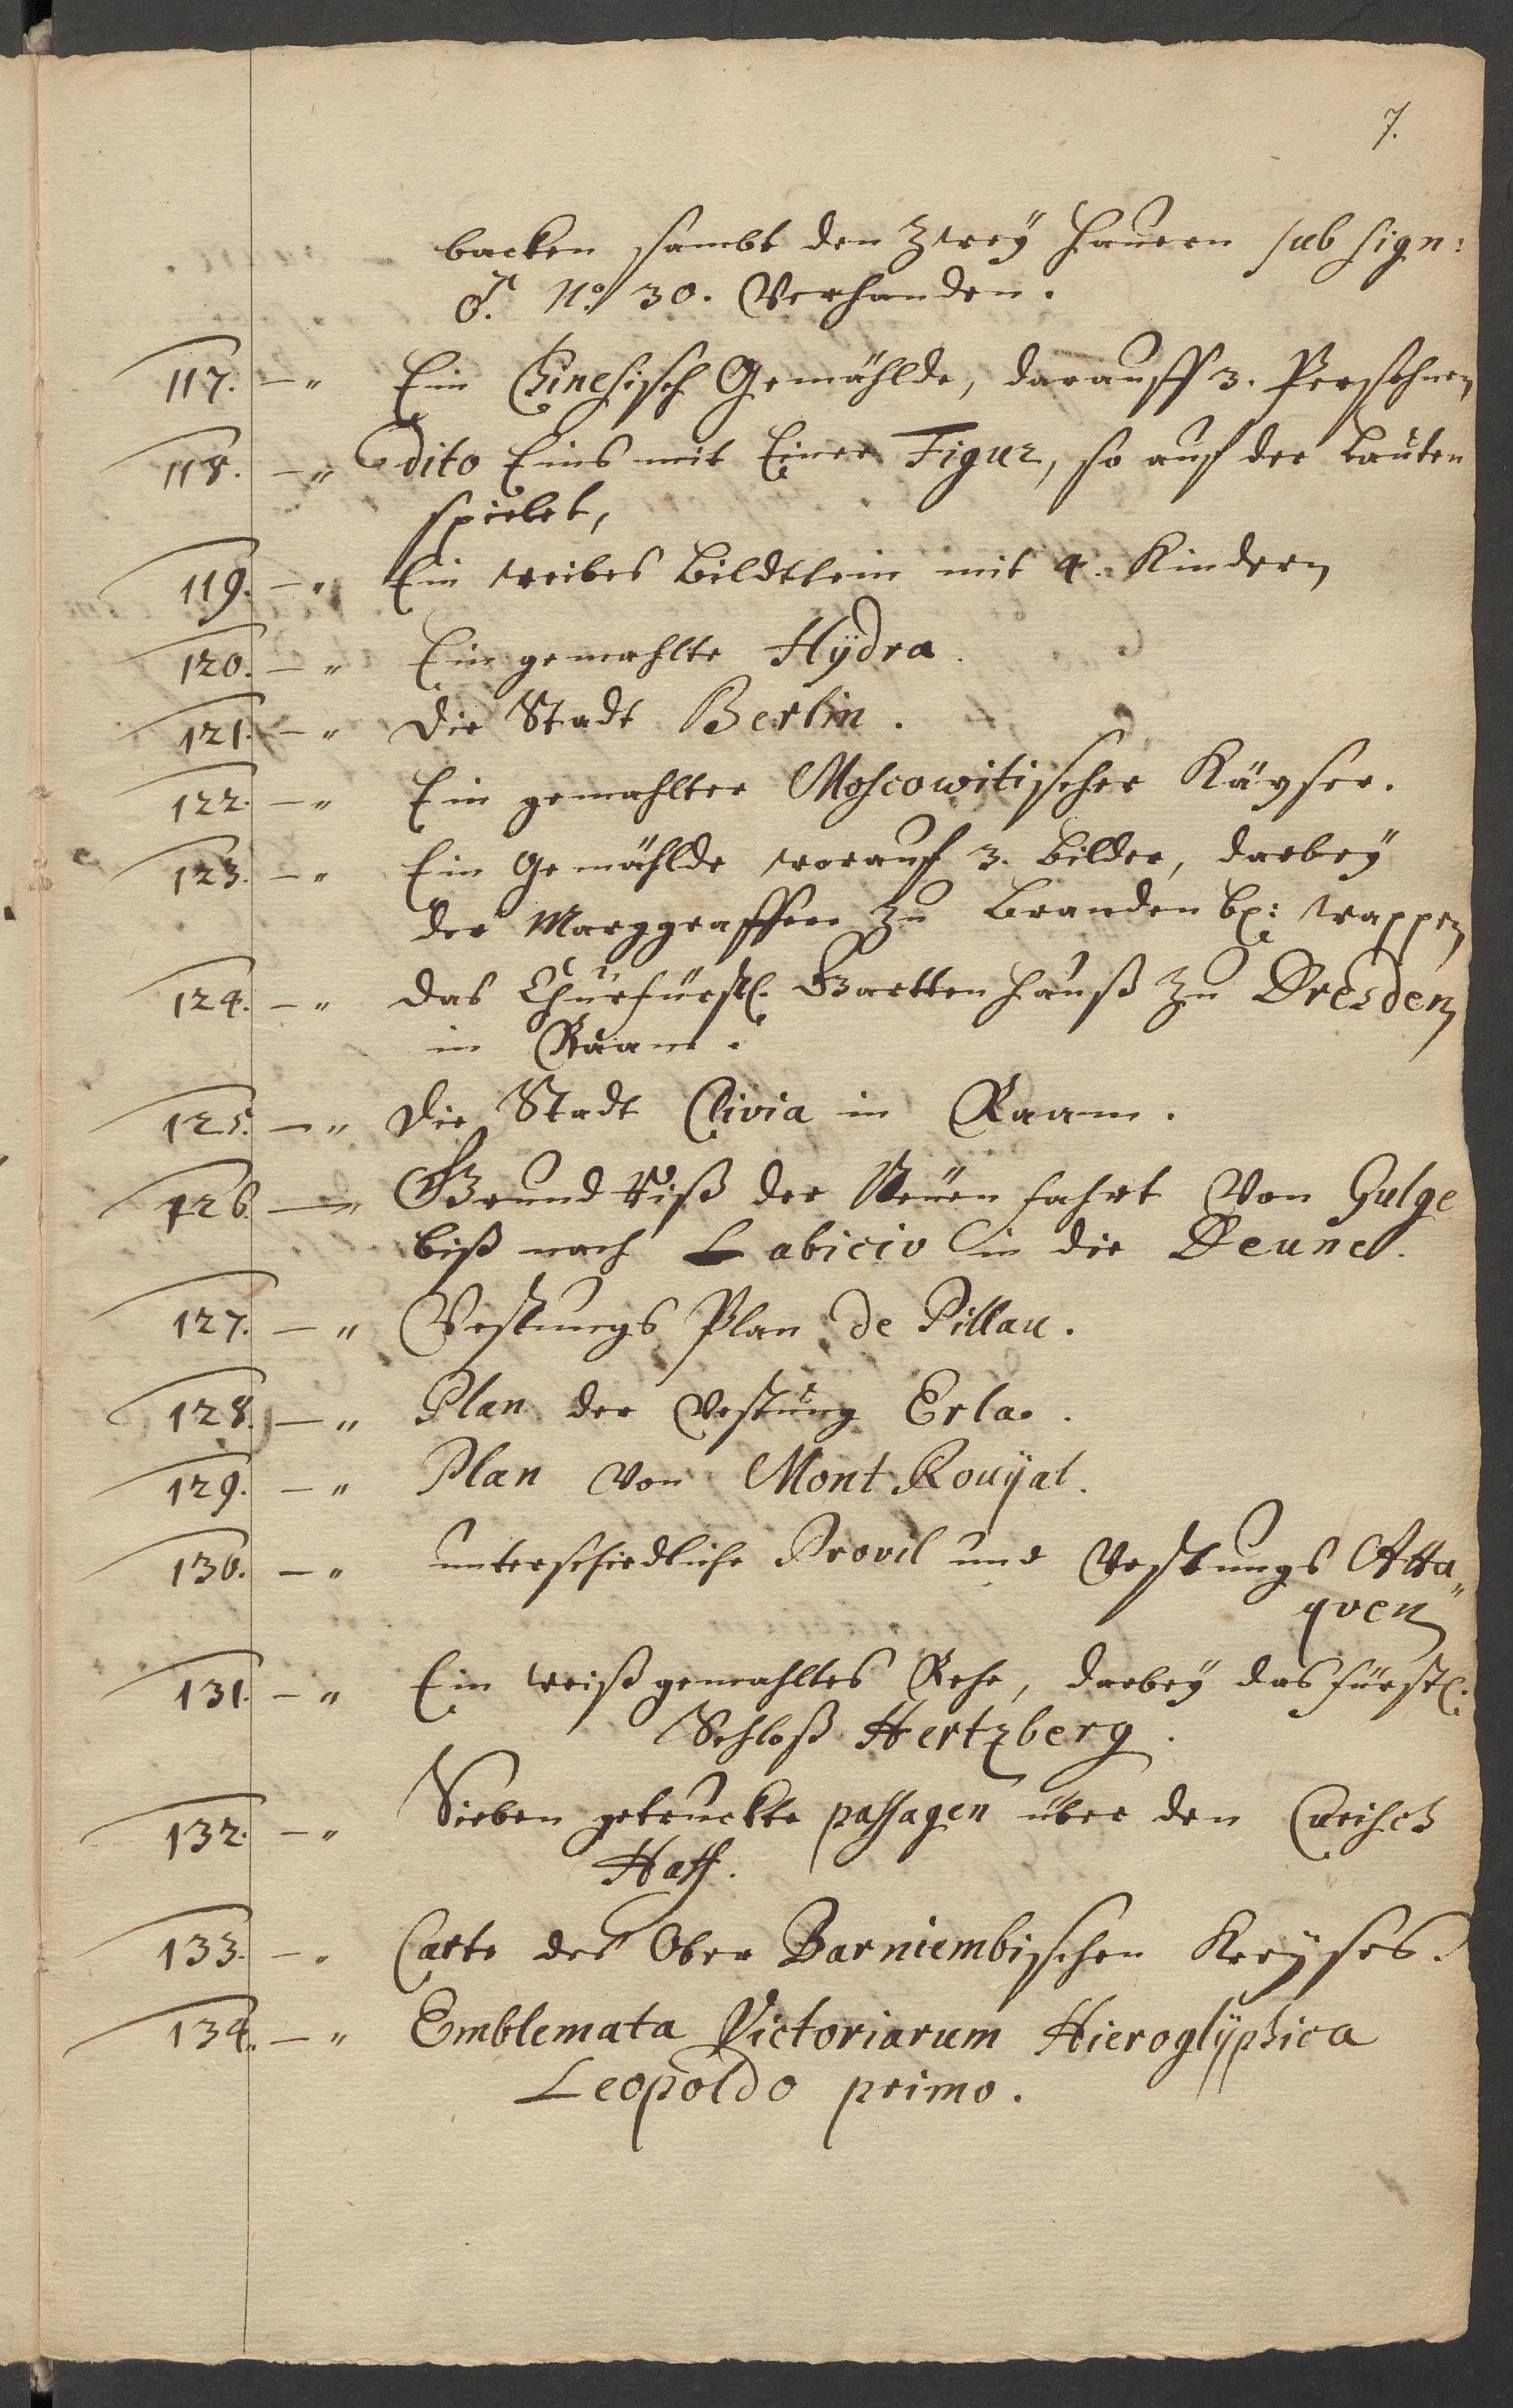 7.
backen sambt den Zwey hauern sub sign:
No. 30. Verhanden.
117. – " Ein Chinesisch Gemählde, darauff 3. Persohnen
118. – " dito Eins mit Einer Figur, so auf der Lauten
spielet,
119. – " Ein weibes Bildtlein mit 4. Kindern
120. – " Ein gemahlte Hÿdra.
121. – " die Stadt Berlin.
122. – " Ein gemahlter Moscowitischer Käyser.
123. – " Ein Gemählde worauf 3. bilder, darbeÿ
der Marggraffen zu Brandenb: wappen
124. – " das Churfürstl. Gartten hauß zu Dresden
in Raam.
125. – " die Stadt Clivia in Raam.
126. – " Grund Riß der Neüen fahrt Von Gulge
biß nach Labiciv in die Deune.
127. – " Vestungs Plan de Pillau.
128. – " Plan der Vestung Erla.
129. – " Plan Von Mont Rouÿal.
130. – " unterschiedliche Provil und Vestungs Atta"
qven
131. – " Ein weiß gemahltes Rehe, darbeÿ das fürstl:
Schloß Hertzberg.
132. – " Sieben getruckte passagen über den Curisch
Haff.
133. – " Carte des Ober Barniembischen Kreÿses.
134. – " Emblemata Victoriarum Hieroglÿphica
Leopoldo primo.